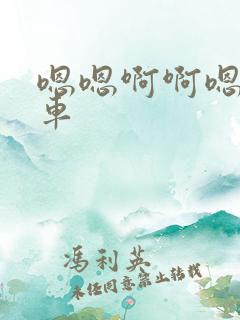 嗯嗯啊啊嗯
車
馮利英
未经同意禁止转载